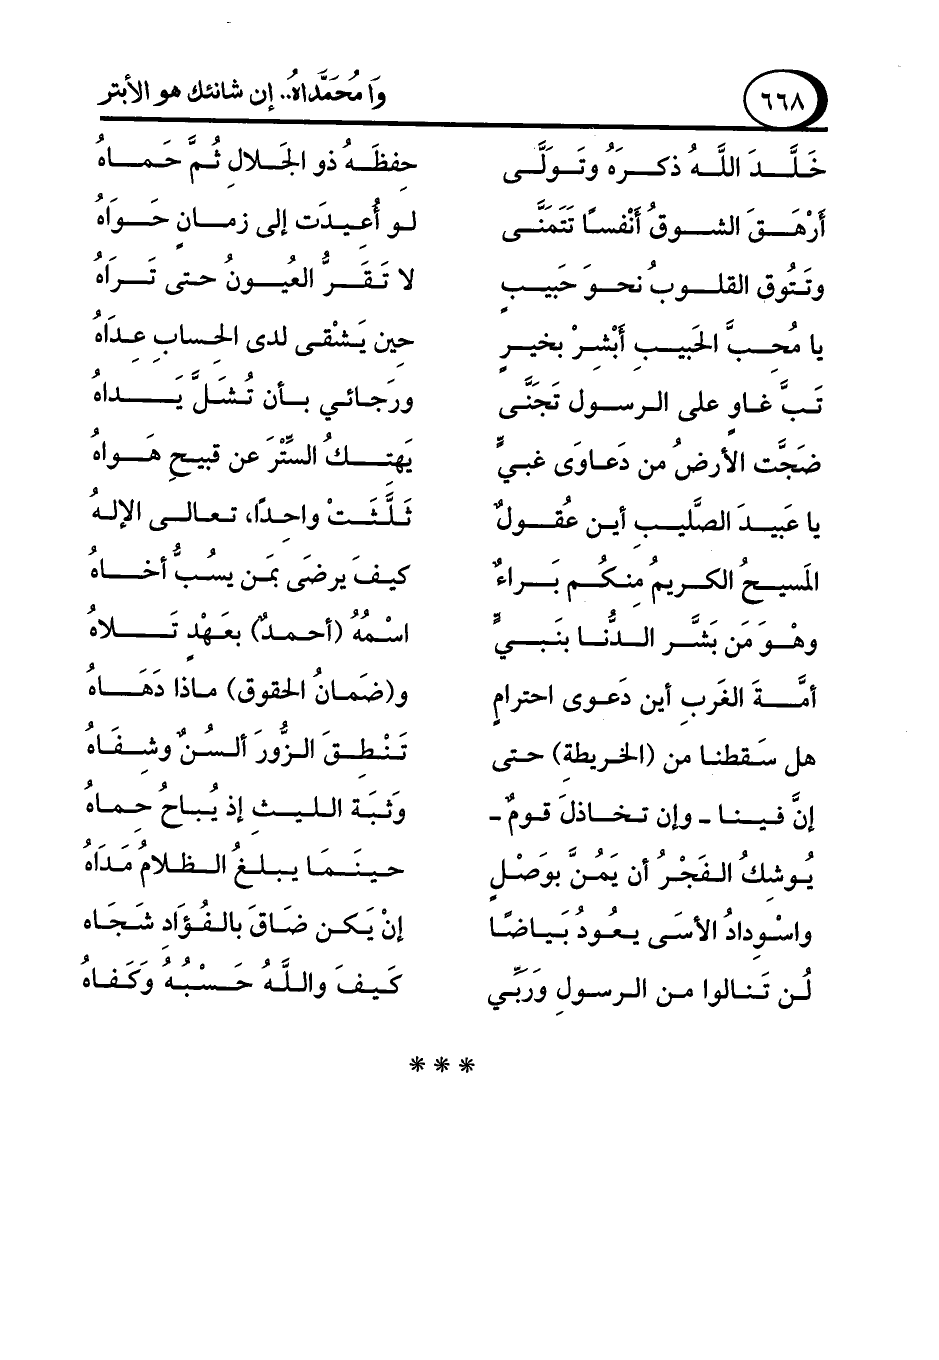 ٦٦٨ وَا مُحَمَّدَاهُ.. إن شانئك هو الأبتر
خَلَّـدَ اللَّهُ ذكـرَهُ وتَـولَّى حِفظَـهُ ذو الجَلالِ ثُـمَّ حَمـاهُ
أرْهَـقَ الشـوقُ أنْفسًـا تَتَمنَّى لـو أُعيـدَت إلى زمـانٍ حَـواهُ
وتَتُوق القلـوبُ نحـوَ حَبيبٍ لا تَـقَـرُّ العُيـونُ حـتى تَـراهُ
يا مُحـبَّ الحَبيبِ أَبْشرْ بخيـرٍ حين يَشْقـى لدى الحِسابِ عِـداهُ
تَـبَّ غـاوٍ على الـرسـولِ تَجَنَّى ورَجـائي بـأن تُـشَـلَّ يَـداهُ
ضَجَّت الأرضُ من دَعـاوَى غبيٍّ يَهتِـكُ السـتَّرَ عن قبيحِ هَـواهُ
يا عَبيـدَ الصَّليـبِ أيـن عقُـولٌ ثَلَّثَـتْ واحِـدًا، تـعـالـى الإلـهُ
المَسيـحُ الكـريمُ منكـم بَـراءٌ كيـفَ يرضَى بمَـن يسُـبُّ أخـاهُ
وهْـوَ مَن بَشَّـر الـدُّنـا بنَبـيٍّ اسْمُهُ (أحـمـدٌ) بعَهْدٍ تَـلاهُ
أمَّـةَ الغَربِ أين دَعـوى احترامٍ و(ضَمانُ الحقوقِ) مـاذا دَهَـاهُ
هل سَقطنـا من (الخريطةِ) حـتى تَنْطِـقَ الـزُّورَ ألسُنٌ وشِـفَـاهُ
إنَّ فيـنـا ـ وإن تـخـاذلَ قـومٌ ـ وَثبَـةَ الليـثِ إذ يُبـاحُ حِمـاهُ
يُـوشكُ الـفَجْرُ أن يَمُـنَّ بوَصْلٍ حينَـمَـا يبلـغُ الـظلامُ مَـدَاهُ
واسْـودادُ الأسَـى يـعُـودُ بَيـاضًـا إنْ يَكـن ضَـاقَ بالـفُـؤَادِ شَـجَاه
لَن تَنـالـوا مـن الـرسـولِ وَرَبِّي كَـيـفَ واللَّـهُ حَـسْبُـهُ وكَـفـاهُ
* * *